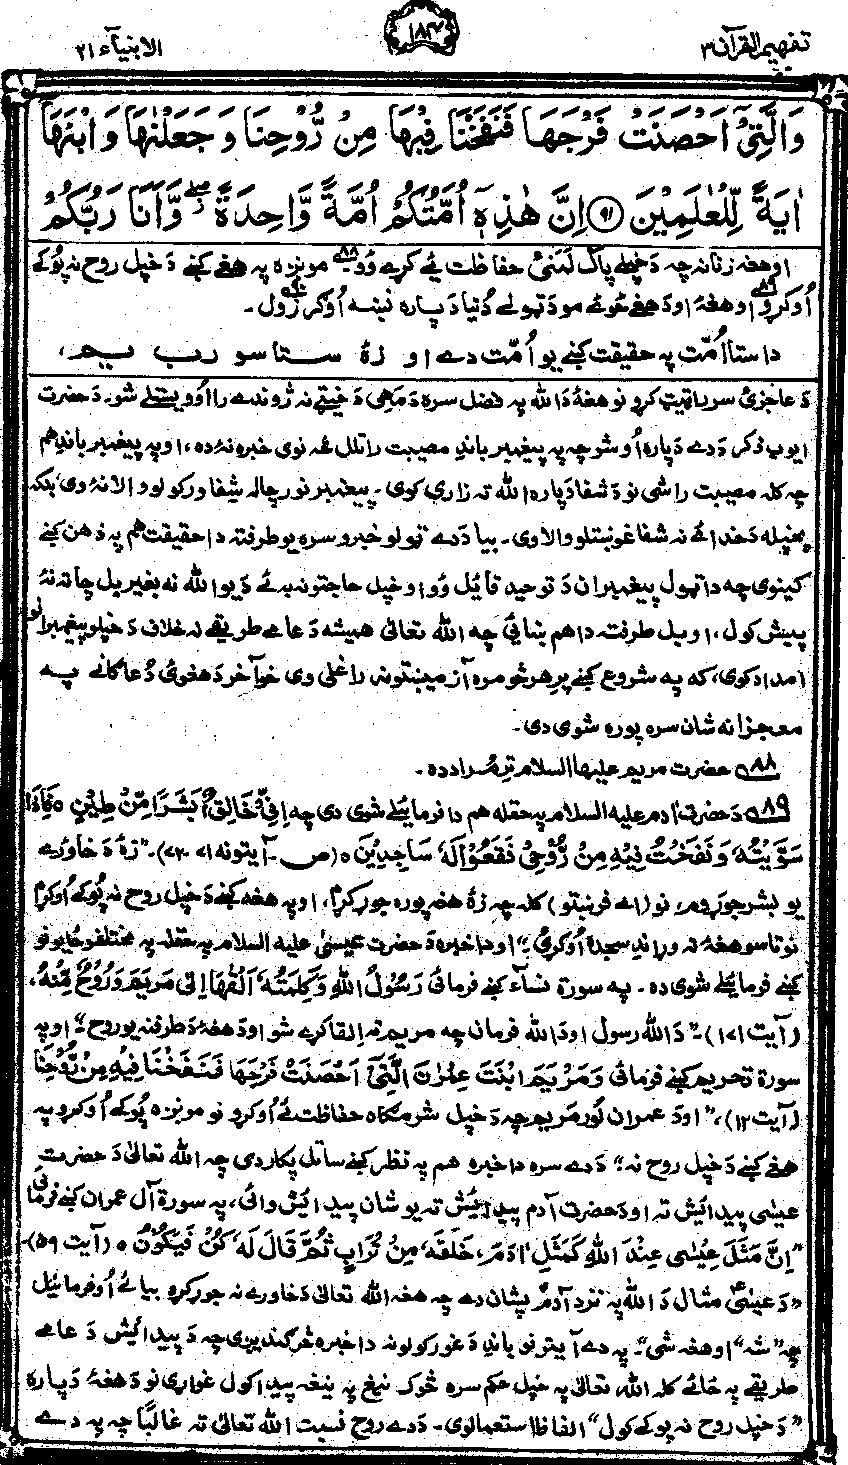 تفهيم القرآن ۳ ۱۸۴ الانبيآء ۲۱
وَالَّتِيْٓ اَحْصَنَتْ فَرْجَهَا فَنَفَخْنَا فِيْهَا مِنْ رُّوْحِنَا وَجَعَلْنٰهَا وَابْنَهَآ
اٰيَةً لِّلْعٰلَمِيْنَ ﴿۹۱﴾ اِنَّ هٰذِهٖٓ اُمَّتُكُمْ اُمَّةً وَّاحِدَةً ۖ وَّاَنَا رَبُّكُمْ
او هغه زنانه چه دَ خپلے پاک لَمنئ حفاظت ئے کرے وُو ۸۸ مونږه په هغے کښے دَ خپل روح نه پُوکے
اُوکړو ۸۹ او هغهٔ او دَ هغے ځوئے مو دَ ټولے دُنيا دَ پاره نښه اُوګرزول ۹۰ ـ
دا ستا اُمّت په حقيقت کښے يو اُمّت دے او زهٔ ستاسو رب يم،
دَ عاجزئ سره توبه کړو نو هغهٔ دَ الله په فضل سره دَ مهى دَ خيټے نه ژوندے را اُوويستلے شو۔ دَ حضرت
ايوب ذکر دَ دے دَ پاره اُوشو چه په پيغمبر باندِ مصيبت راتلل څه نوى خبره نهٔ ده، او په پيغمبر باندِ هم
چه کله مصيبت راشى نو دَ شفا دَ پاره الله ته زارى کوى ـ پيغمبر نور چاله شِفا ورکولو والا نهٔ دى بلکه
پخپله دَ خدائے نه شفا غوښتلو والا وى ـ بيا دَ دے ټولو خبرو سره يو طرفته دا حقيقت هم په ذهن کښے
کښينوى چه دا ټول پيغمبران دَ توحيد قائل وُو او خپل حاجتونه بے دَ يو الله نه بغير بل چاته نهٔ
پيش کول، او بل طرفته دا هم ښائى چه الله تعالىٰ هميشه دَ عامے طريقے نه خلاف دَ خپلو پيغمبرانو
امداد کوى، که په شروع کښے پرِ هر څومره آزمېښتونه راغلى وى خو آخر دَ هغوئ دُعاګانے په
معجزانه شان سره پوره شوى دى۔
۸۸ حضرت مريم عليها السلام ترِ مُراد ده ـ
۸۹ دَ حضرت آدم عليه السلام په حقله هم دا فرمائيلے شوى دى چه اِنِّىْ خَالِقٌۢ بَشَرًا مِّنْ طِيْنٍ ○ فَاِذَا
سَوَّيْتُهٗ وَنَفَخْتُ فِيْهِ مِنْ رُّوْحِىْ فَقَعُوْا لَهٗ سَاجِدِيْنَ ○ (صٓ ـ آيتونه ۷۱-۷۲) ـ "زهٔ دَ خاورے
يو بشر جوړوم، نو (اے فرښتو) کله چه زهٔ هغه پوره جوړ کړم، او په هغه کښے دَ خپل روح نه پُوکے اُوکړم
نو تاسو هغهٔ ته ورړاندِ سجده اُوکړئ"؛ او دا خبره دَ حضرت عيسىٰ عليه السلام په حقله په مختلفو ځايونو
کښے فرمائيلے شوى ده ـ په سورة نسآء کښے فرمائى رَسُوْلُ اللهِ وَكَلِمَتُهٗ اَلْقٰهَا اِلٰى مَرْيَمَ وَرُوْحٌ مِّنْهُ،
(آيت ۱۷۱) ـ "دَ الله رسول او دَ الله فرمان چه مريم ته اِلقا کړے شو او دَ هغهٔ دَ طرفنه يو روح" ـ او په
سورة تحريم کښے فرمائى وَمَرْيَمَ ابْنَتَ عِمْرٰنَ الَّتِىْٓ اَحْصَنَتْ فَرْجَهَا فَنَفَخْنَا فِيْهِ مِنْ رُّوْحِنَا
(آيت ۱۲)، "او دَ عمران لُور مريم چه دَ خپل شرمګاه حفاظت ئے اُوکړو نو مونږه پُوکے اُوکړو په
هغے کښے دَ خپل روح نه" دَ دے سره دا خبره هم په نظر کښے ساتل پکار دى چه الله تعالىٰ دَ حضرت
عيسٰى پيدائيش ته او دَ حضرت آدم پيدائيش ته يو شان پيدائيش وائى، په سورة آل عمران کښے فرمائى
"اِنَّ مَثَلَ عِيْسٰى عِنْدَ اللهِ كَمَثَلِ اٰدَمَ، خَلَقَهٗ مِنْ تُرَابٍ ثُمَّ قَالَ لَهٗ كُنْ فَيَكُوْنُ ○ (آيت ۵۹) ـ
"دَ عيسىٰؑ مثال دَ الله په نزد آدمؑ پشان دے چه هغه الله تعالىٰ دَ خاورے نه جوړ کړه بيا ئے اُوفرمائيل
چه "شه" او هغه شى" ـ په دے آيتونو باندِ دَ غور کولو نه دا خبره څرګنديږى چه دَ پيدائيش دَ عامے
طريقے په ځائے کله الله تعالىٰ په خپل حکم سره څوک نيغ په نيغه پيدا کول غواړى نو دَ هغهٔ دَ پاره
"دَ خپل روح نه پوکے کول" الفاظ استعمالوى ـ دَ دے روح نسبت الله تعالىٰ ته غالبًا چه په دے